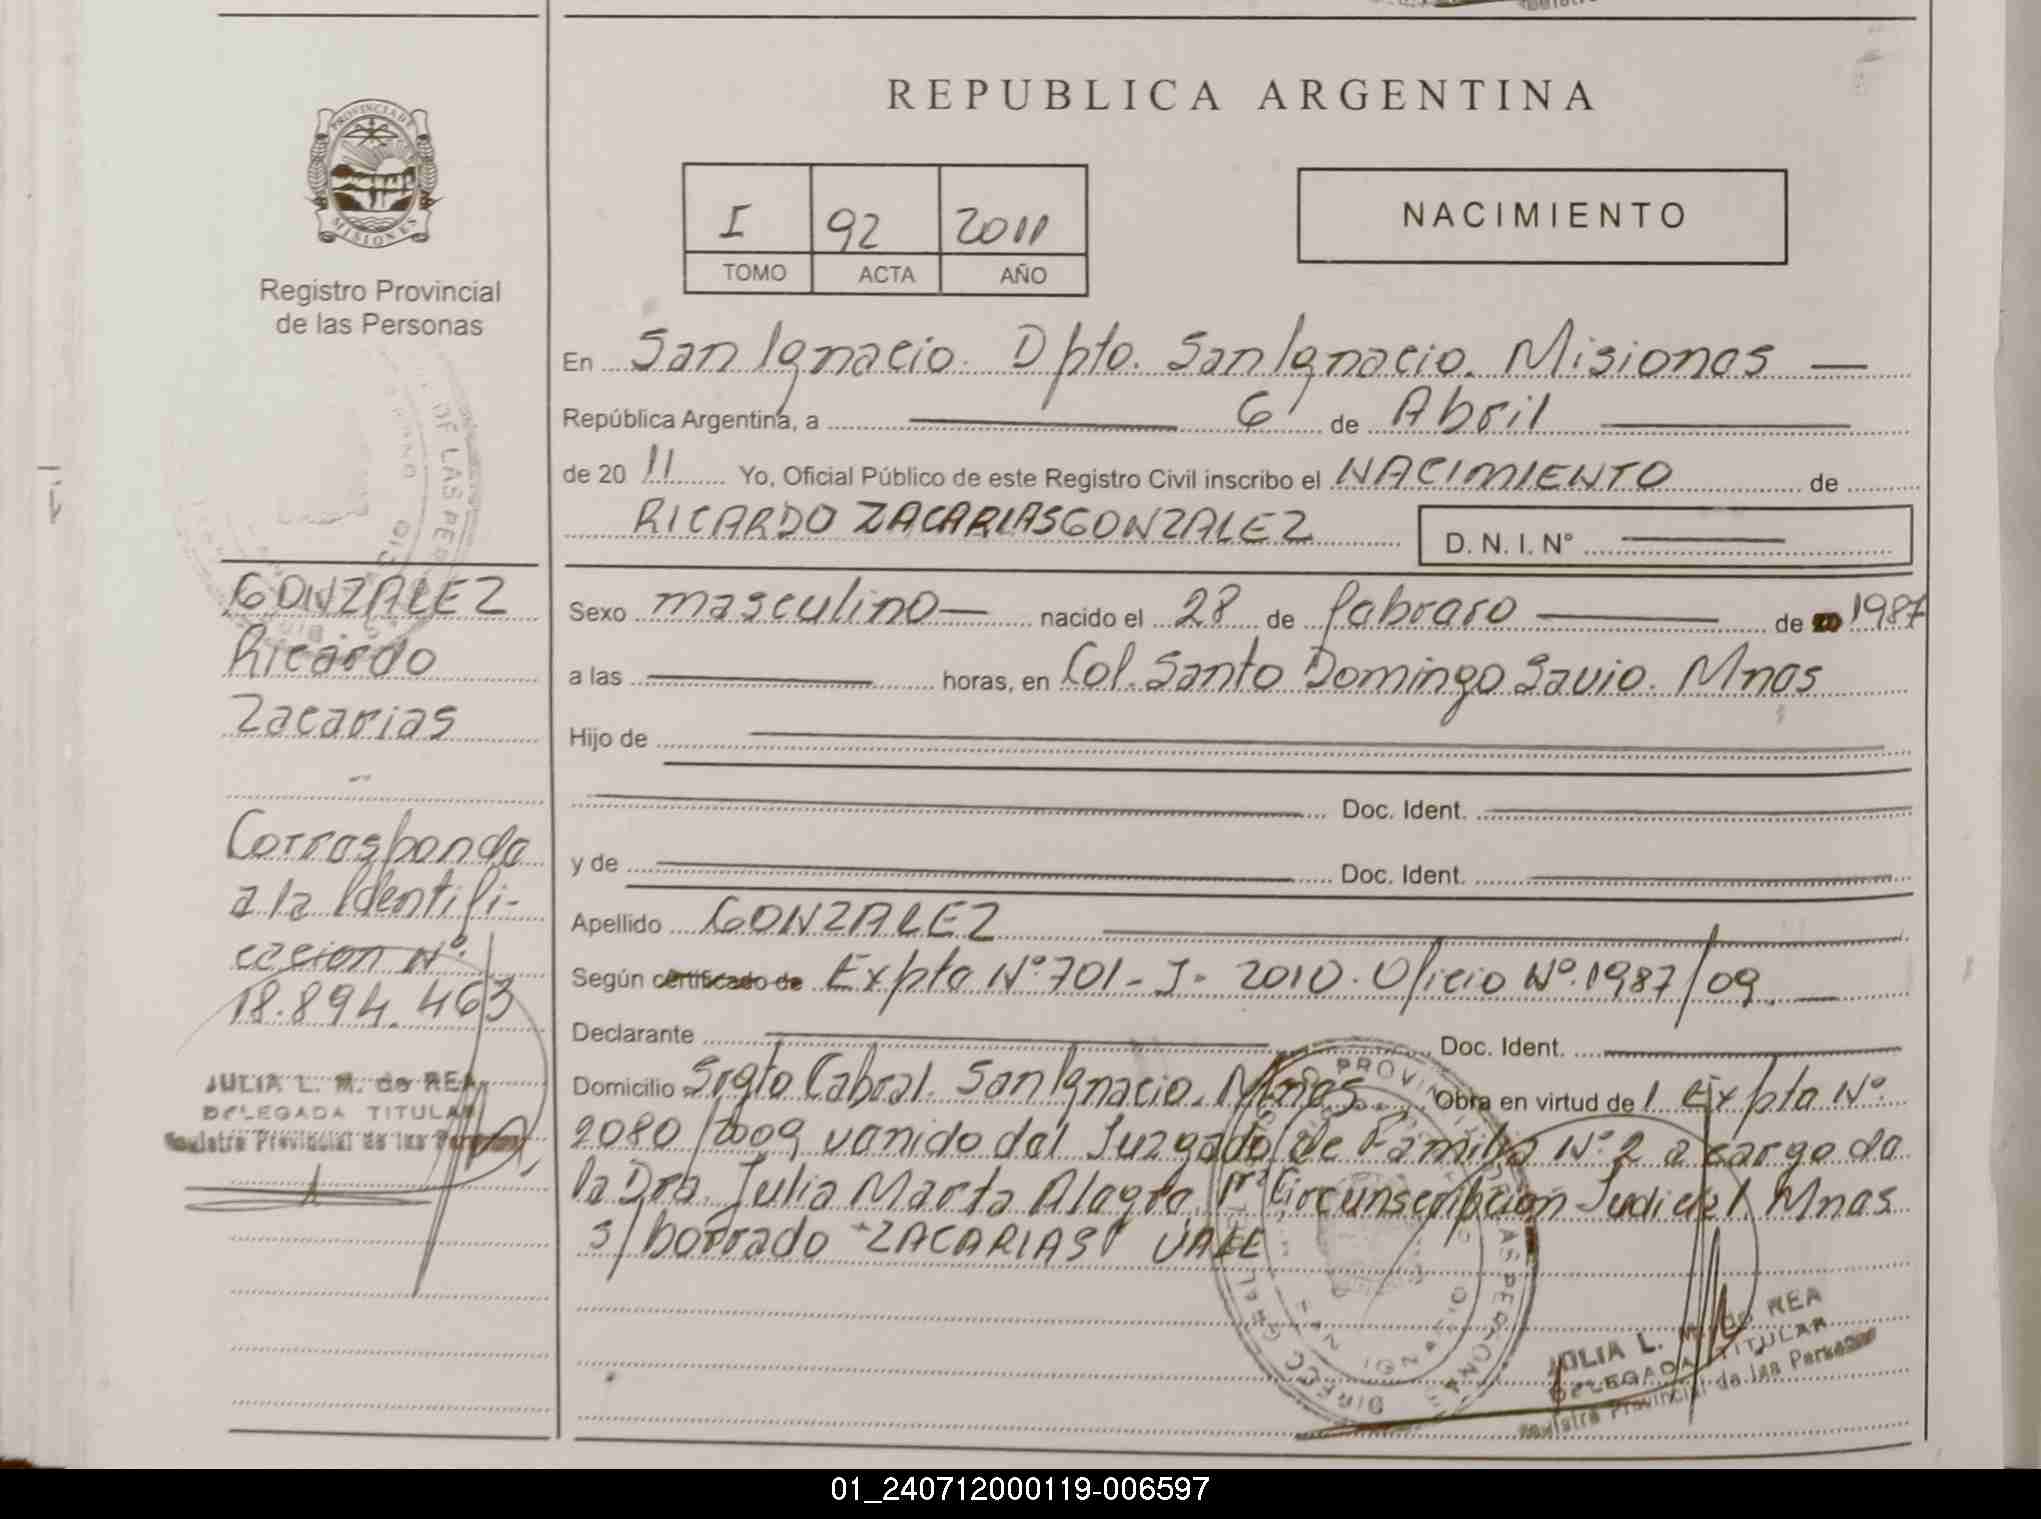 REPUBLICA ARGENTINA
PROVINCIA DE
MISIONES
Registro Provincial
de las Personas
I 92 2011
TOMO ACTA AÑO
NACIMIENTO
En San Ignacio. Dpto. San Ignacio. Misiones —
República Argentina, a 6 de Abril
de 20 11 Yo, Oficial Público de este Registro Civil inscribo el NACIMIENTO de
RICARDO ZACARIAS GONZALEZ D. N. I. Nº
GONZALEZ
Ricardo
Zacarias
Corresponde
a la Identifi-
cacion Nº
18.894.463
JULIA L. M. de REA
DELEGADA TITULAR
Registro Provincial de las Personas
Sexo masculino — nacido el 28 de febrero de 20 1987
a las horas, en Col. Santo Domingo Savio. Mnes
Hijo de
Doc. Ident.
y de Doc. Ident.
Apellido GONZALEZ
Según certificado de Expte Nº 701-J-2010. Oficio Nº.1987/09. —
Declarante Doc. Ident.
Domicilio Srgto Cabral. San Ignacio. Mnes Obra en virtud de l Expte Nº
2080/2009 venido del Juzgado de Familia Nº 2 a cargo de
la Dra. Julia Marta Alegre 1ra Circunscripcion Judicial. Mnes
s/ borrado "ZACARIAS" VALE
JULIA L. M. de REA
DELEGADA TITULAR
Registro Provincial de las Personas
01_240712000119-006597